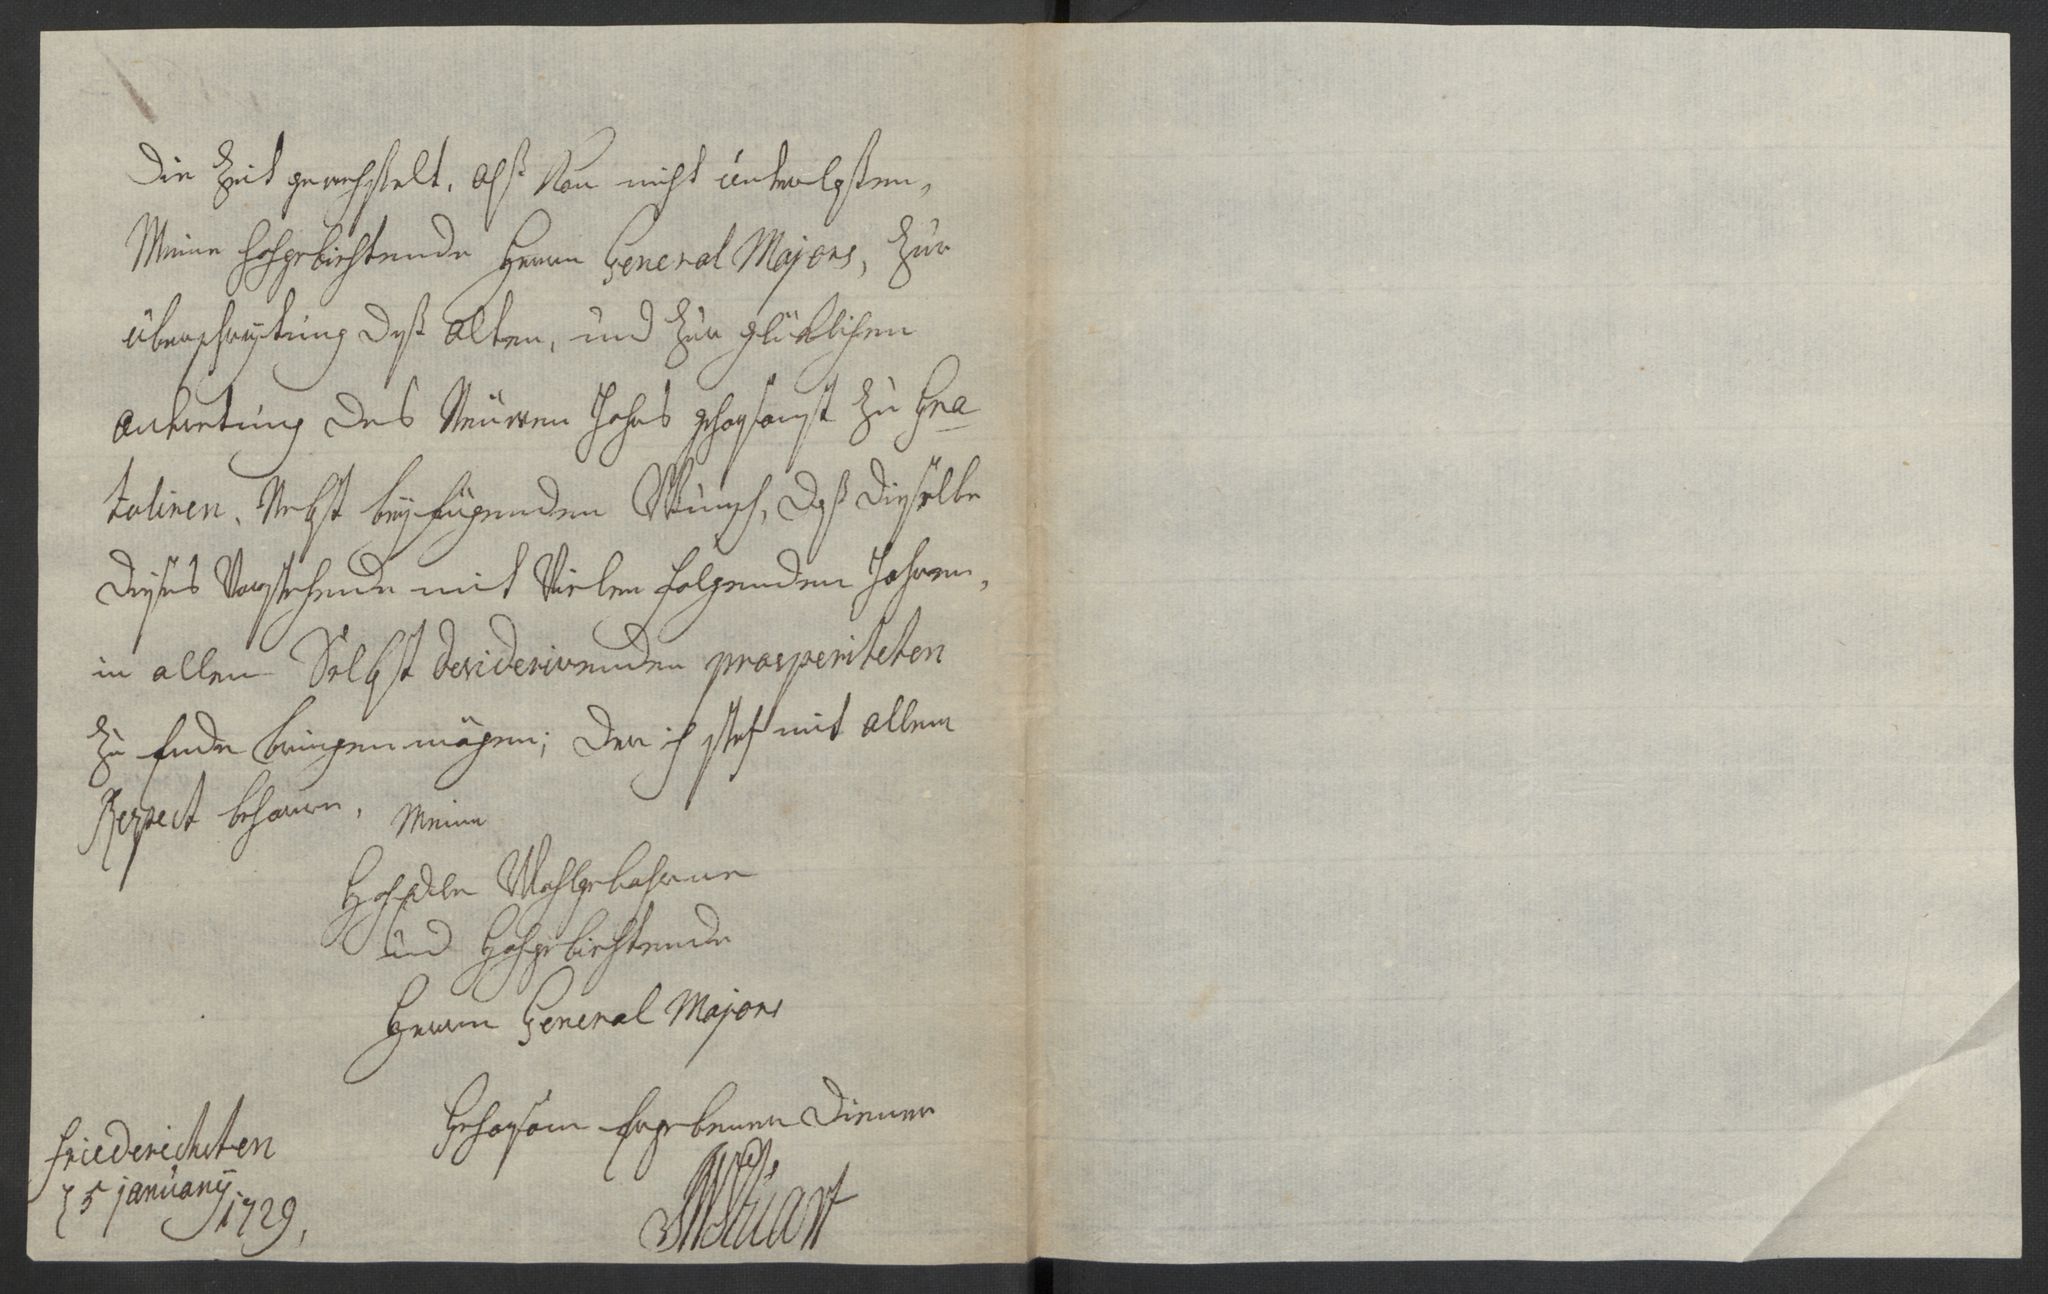 Die Zeit gewechselt. Alß kan nicht unterlaßen,
Meine hochgebiethende Herrn General Majors, Zur
überschreitung deß alten, und Zur glüklichen
antretung des Neuwen Jahrs gehorsamst Zu Gra
tuliren. Nebst beyfügenden Wunsch, daß dieselbe
dieses Vorstehende mit Vielen folgenden Jahren,
in allen Selbst desiderirenden prosperiteten
Zu Ende bringen mögen; der ich stets mit allem
Respect beharre, Meine
HochEdle Wohlgebohrne
und Hochgebiethende
Herrn General Majors
Gehorsam Ergebener Diener
Stuart
Friederichsten
5 january
1729.